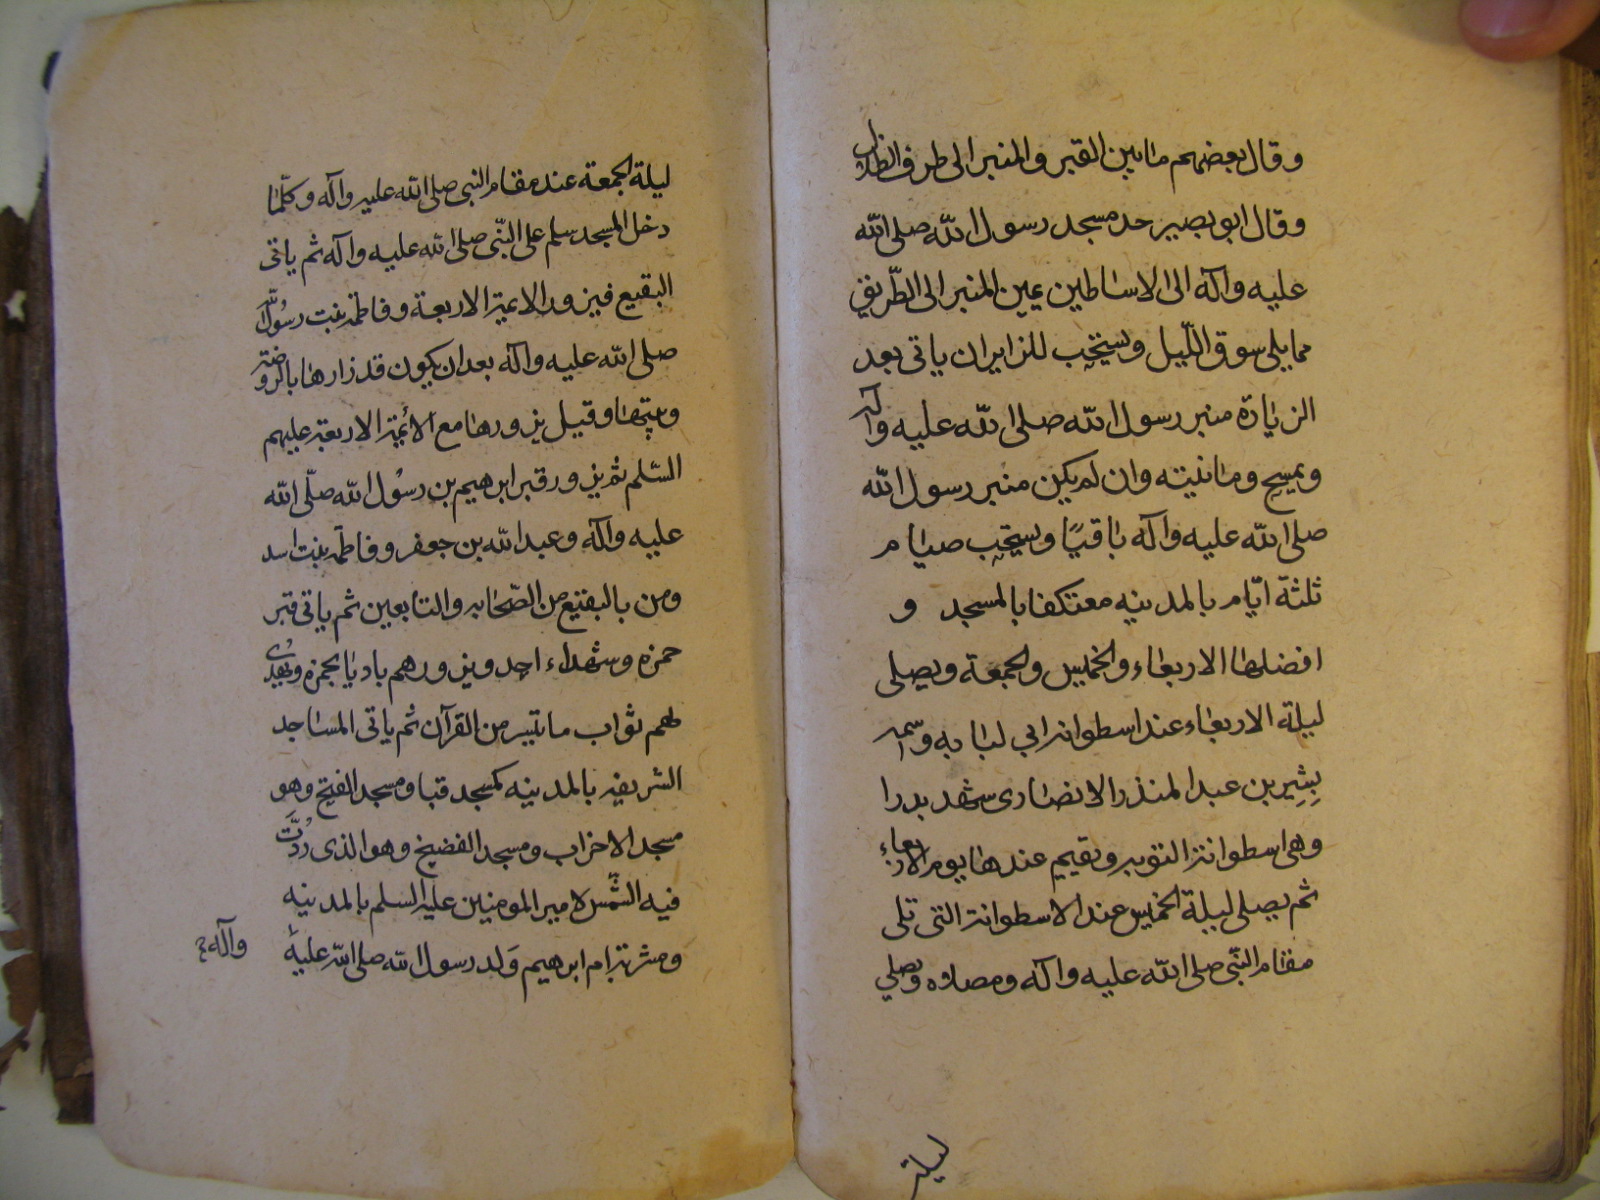 وقال بعضهم ما بين القبر والمنبر الى طرف الظلال
وقال ابو بصير حد مسجد رسول الله صلى الله
عليه وآله الى الاساطين يمين المنبر الى الطّريق
مما يلي سوق اللّيل ويستحب للزايران ياتى بعد
الزيارة منبر رسول الله صلى الله عليه وآله
ويمسح ومانتيه وان لم يكن منبر رسول الله
صلى الله عليه وآله باقيًا ويستحب صيام
ثلثة ايّام بالمدينه معتكفا بالمسجد و
افضلها الاربعاء والخميس والجمعة ويصلى
ليلة الاربعاء عند اسطوانه ابي لبابه واسمه
بِشِير بن عبد المنذر الانصارى شهد بدرا
وهى اسطوانة التوبه ويقيم عندها يوم الاربعاء
ثم يصلى ليلة الخميس عند الاسطوانة التى تلى
مقام النّبى صلى الله عليه وآله ومصلاه ويصلي
ليلة
ليلة الجمعة عند مقام النبى صلى الله عليه وآله وكلّما
دخل المسجد سلم على النّبى صلى الله عليه وآله ثم ياتى
البقيع فيزور الايمة الاربعة وفاطمه بنت رسُول الله
صلى الله عليه وآله بعد ان يكون قد زارها بالروضة
وبيتها وقيل يزورها مع الأئمة الاربعة عليهم
السّلم ثم يزور قبر ابرهيم بن رسُول الله صلّى الله
عليه وآله وعبد الله بن جعفر وفاطمه بنت اسد
ومن بالبقيع من الصّحابه والتابعين ثم ياتى قبر
حمزه وشهداء احد ويزورهم باديًا بحمزه ويهدى
لهم ثواب ما تيسر من القرآن ثم ياتى المساجد
الشريفه بالمدينه كمسجد قبا ومسجد الفتح وهو
مسجد الاحزاب ومسجد الفضيخ وهو الذى رُدّت
فيه الشّمس لامير المومنين عليه السلم بالمدينه
ومشربة ام ابرهيم وَلد رسول الله صلى الله عليه وآله